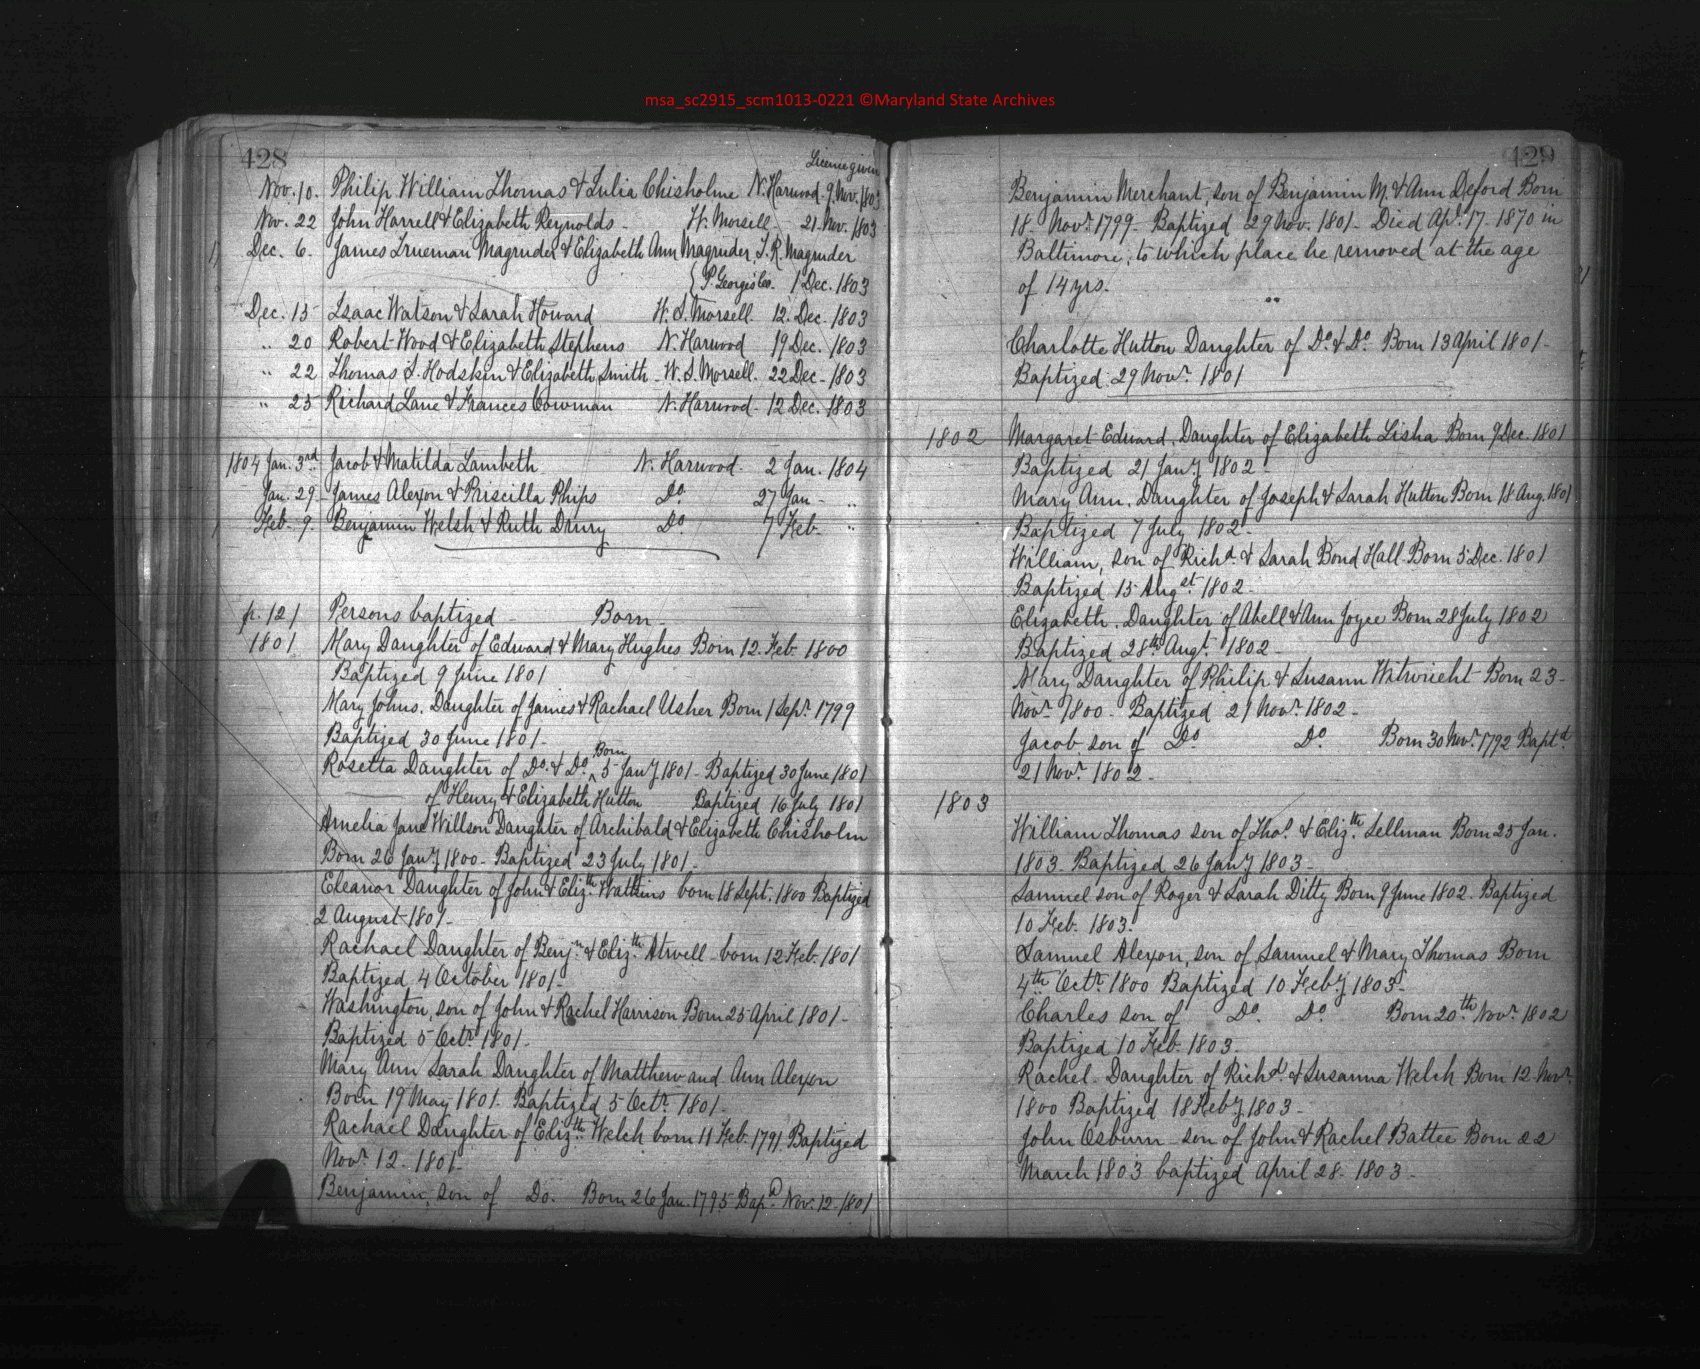 msa_sc2915_scm1013-0221 ©Maryland State Archives
428
License given
Nov. 10. Philip William Thomas & Julia Chisholme N. Harwood - 9. Nov. 1803
Nov. 22 John Harrell & Elizabeth Reynolds - W. Morsell - 21 Nov. 1803
Dec. 6. James Trueman Magruder & Elizabeth Ann Magruder. T. R. Magruder
{ P. Georges Co. 1 Dec. 1803
Dec. 15 Isaac Watson & Sarah Howard W. S. Morsell. 12. Dec. 1803
" 20 Robert Wood & Elizabeth Stephens N. Harwood 19 Dec. 1803
" 22 Thomas S. Hodskin & Elizabeth Smith - W. S. Morsell. 22 Dec - 1803
" 25 Richard Lane & Frances Cowman N. Harwood - 12 Dec. 1803
1804 Jan. 3rd. Jacob & Matilda Lambeth N. Harwood. 2 Jan. 1804
Jan. 29. James Alexon & Priscilla Phips Do. 27 Jan - "
Feb. 9. Benjamin Welsh & Ruth Drury Do. 7 Feb - "
p. 121 Persons baptized - Born -
1801 Mary Daughter of Edward & Mary Hughes Born 12. Feb. 1800
Baptized 9 June 1801
Mary Johns. Daughter of James & Rachael Usher Born 1 Sepr. 1799
Baptized 30 June 1801 -
Rosetta Daughter of Do. & Do. ^ Born 5 Jany 1801 - Baptized 30 June 1801
——— of Henry & Elizabeth Hutton Baptized 16 July 1801
Amelia Jane Willson Daughter of Archibald & Elizabeth Chisholm
Born 26 Jany 1800 - Baptized 23 July 1801 -
Eleanor Daughter of John & Elizth. Watkins born 18 Sept. 1800 Baptized
2 August 1801 -
Rachael Daughter of Benjn. & Elizth. Atwell - born 12 Feb. 1801
Baptized 4 October 1801 -
Washington, son of John & Rachel Harrison Born 25 April 1801 -
Baptized 5 Octr. 1801 -
Mary Ann Sarah Daughter of Matthew and Ann Alexon
Born 19 May 1801. Baptized 5 Octr. 1801 -
Rachael Daughter of Elizth. Welch born 11 Feb. 1791 Baptized
Novr. 12. 1801 -
Benjamin, son of Do. Born 26 Jan. 1795 Bapd. Nov. 12 - 1801
429
Benjamin Merchant, son of Benjamin M. & Ann Deford Born
18 - Novr. 1799 - Baptized 29 Nov. 1801 - Died Apr. 17 - 1870 in
Baltimore, to which place he removed at the age
of 14 yrs.
"
Charlotte Hutton Daughter of Do. & Do. Born 13 April 1801 -
Baptized 29 Novr. 1801
1802 Margaret Edward. Daughter of Elizabeth Lisha Born 9 Dec. 1801
Baptized 21 Jany 1802.
Mary Ann. Daughter of Joseph & Sarah Hutton Born 18 Aug. 1801
Baptized 7 July 1802 -
William, son of Richd. & Sarah Bond Hall - Born 5 Dec. 1801
Baptized 15 Augst 1802 -
Elizabeth. Daughter of Abell & Ann Joyce Born 28 July 1802
Baptized 28th Augt. 1802 -
Mary Daughter of Philip & Susann Witwricht Born 23 -
Novr. 1800 - Baptized 21 Novr. 1802 -
Jacob son of Do. Do. Born 30 Novr. 1792 Baptd.
21 Novr. 1802 -
1803
William Thomas son of Thos. & Elizth. Sellman Born 25 Jan.
1803. Baptized 26 Jany 1803 -
Samuel son of Roger & Sarah Ditty Born 9 June 1802. Baptized
10 Feb. 1803.
Samuel Alexon, son of Samuel & Mary Thomas Born
4th Octr. 1800 Baptized 10 Feby 1803 -
Charles son of Do. Do. Born 20th Novr. 1802
Baptized 10 Feb. 1803 -
Rachel - Daughter of Richd. & Susanna Welch Born 12 - Novr.
1800 Baptized 18 Feby 1803 -
John Osburn - son of John & Rachel Battee Born 22
March 1803 baptized April 28 - 1803 -